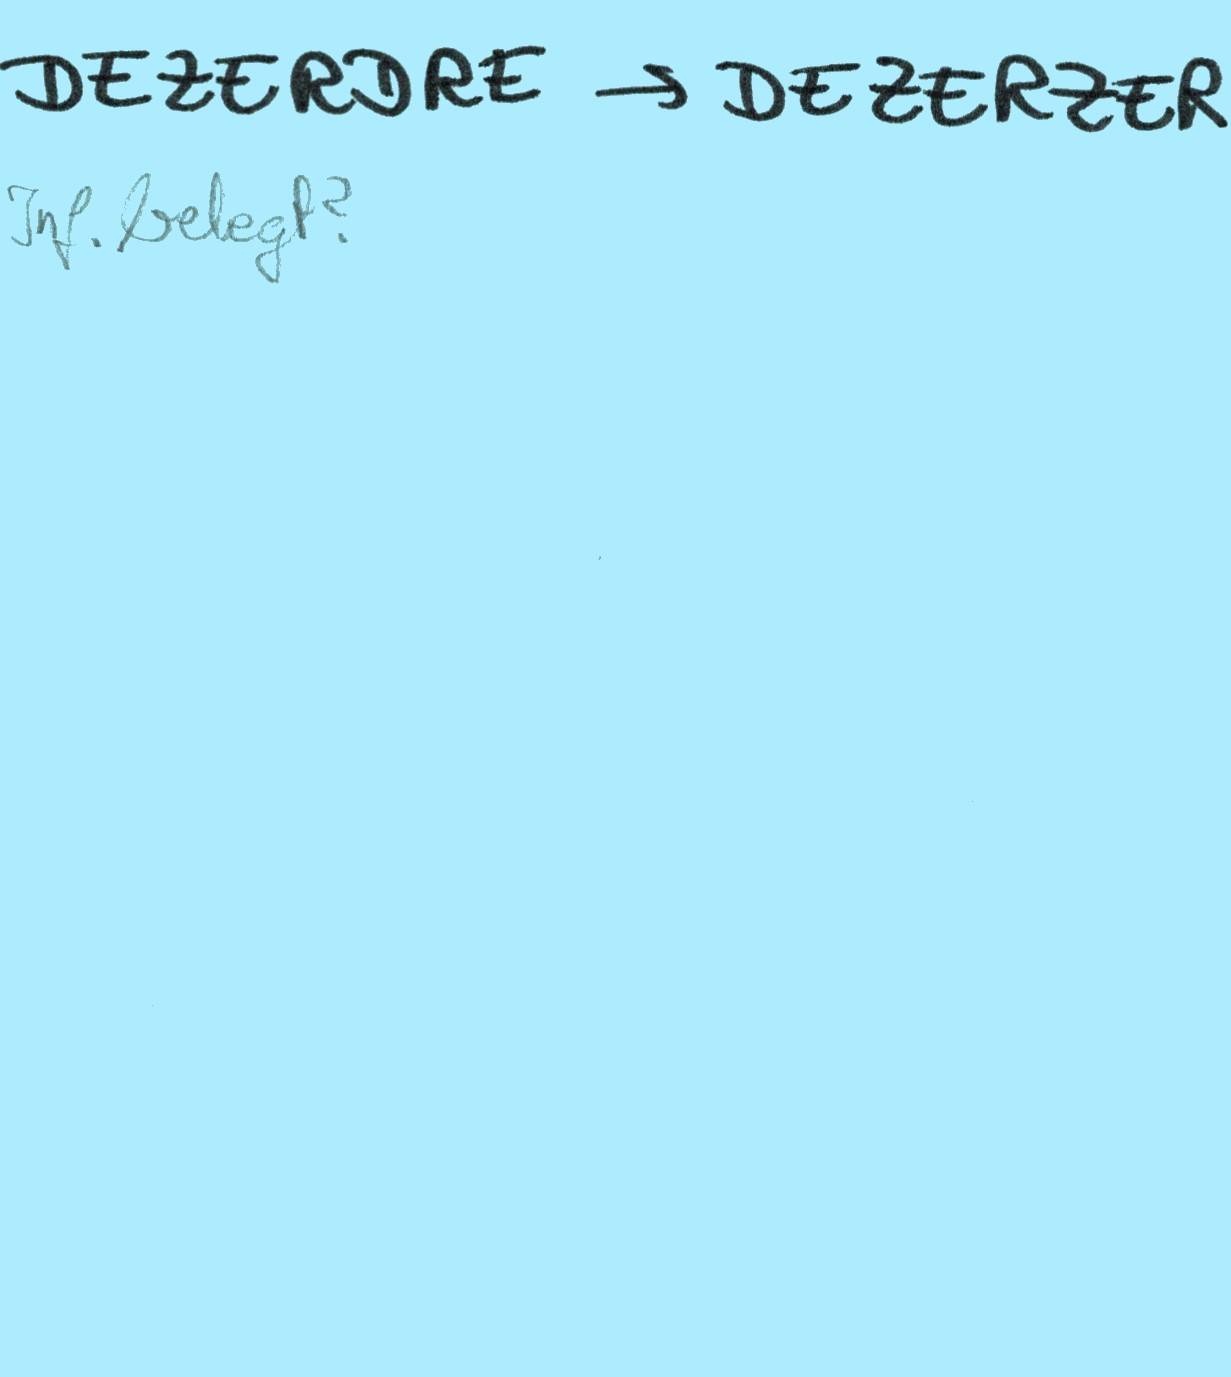 DEZERDRE → DEZERZER
Inf. belegt?